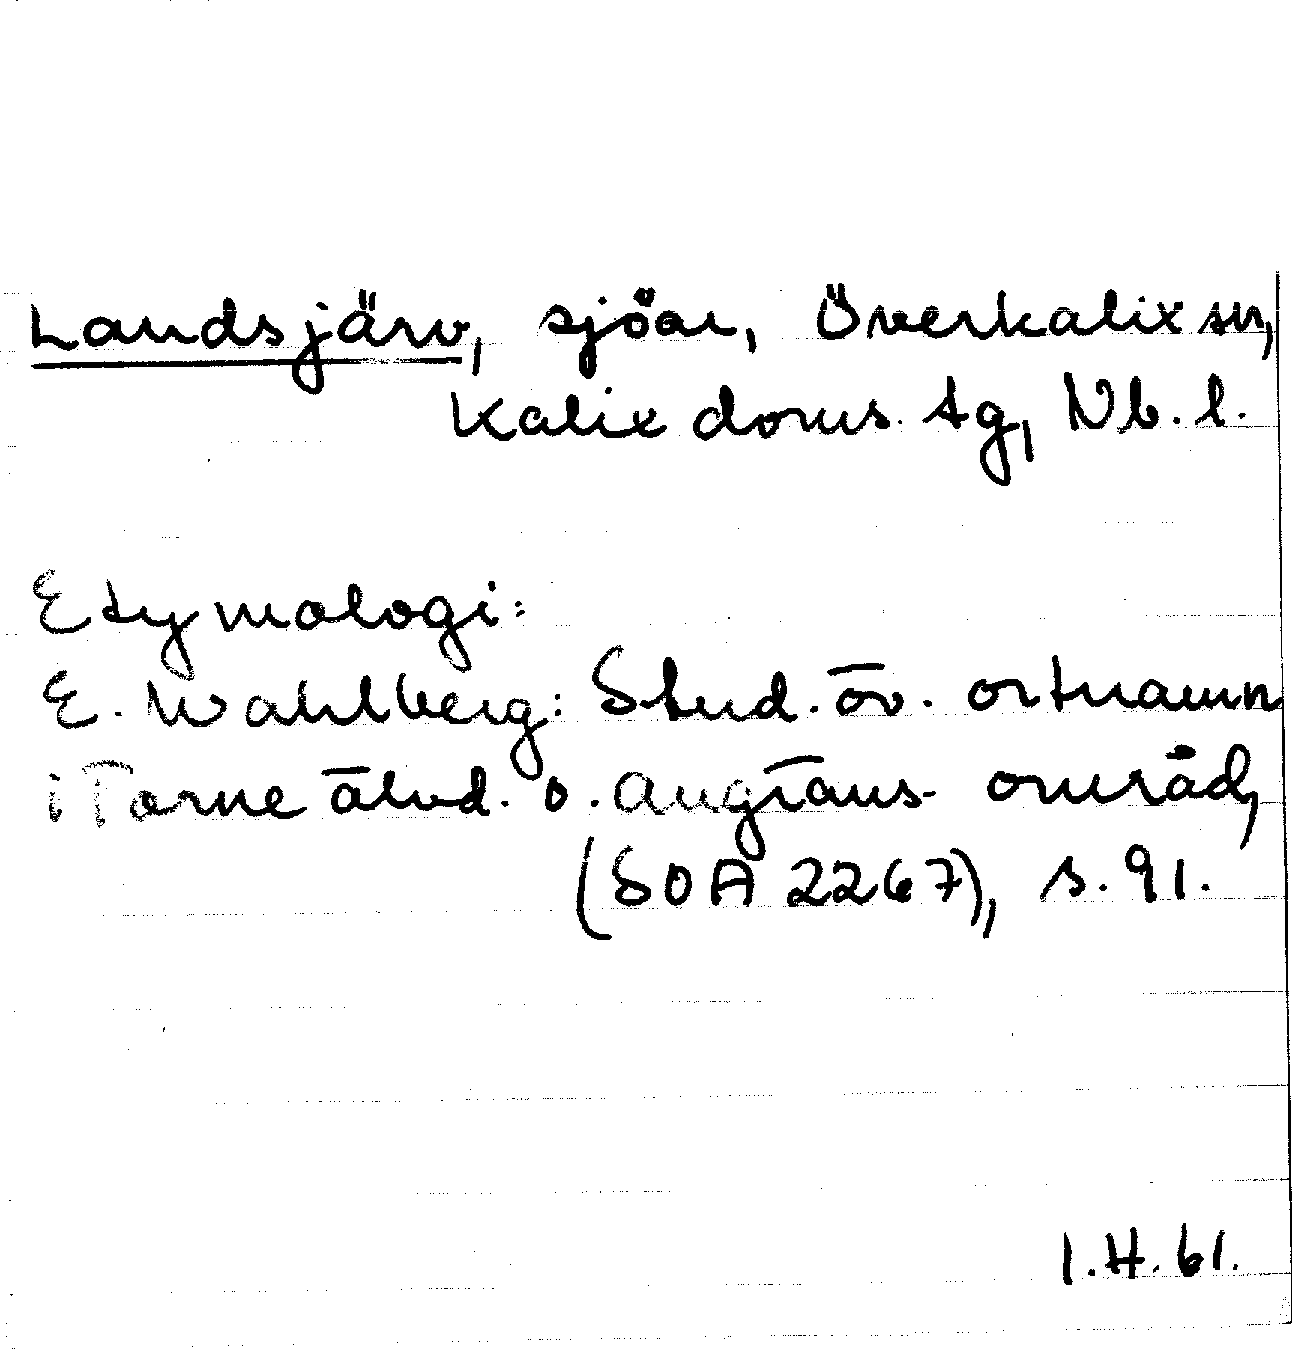 Landsjärv, sjöar, Överkalix sn,
Kalix doms. tg, Nb. l.
Etymologi:
E. Wahlberg: Stud. öv. ortnamn
i Torne älvd. o. angräns. områd,
(SOA 2267), s. 91.
I.H. 61.